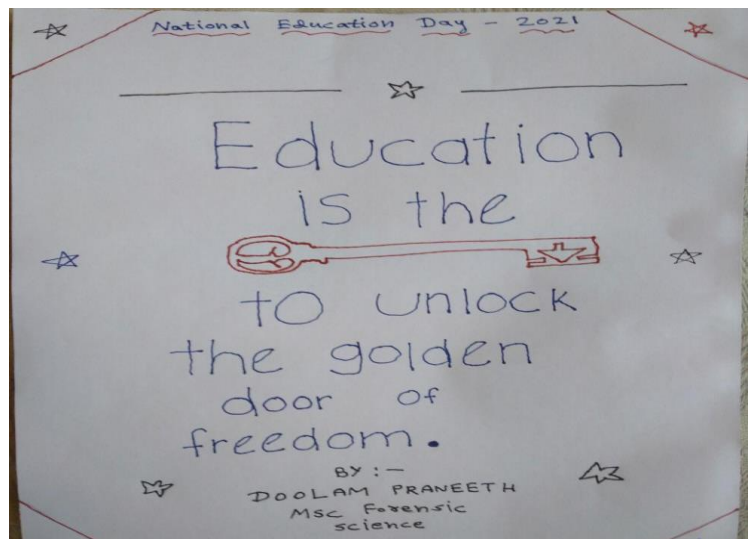 National Education Day - 2021
Education
is the
to unlock
the golden
door of
freedom.
BY :-
DOOLAM PRANEETH
Msc Forensic
science